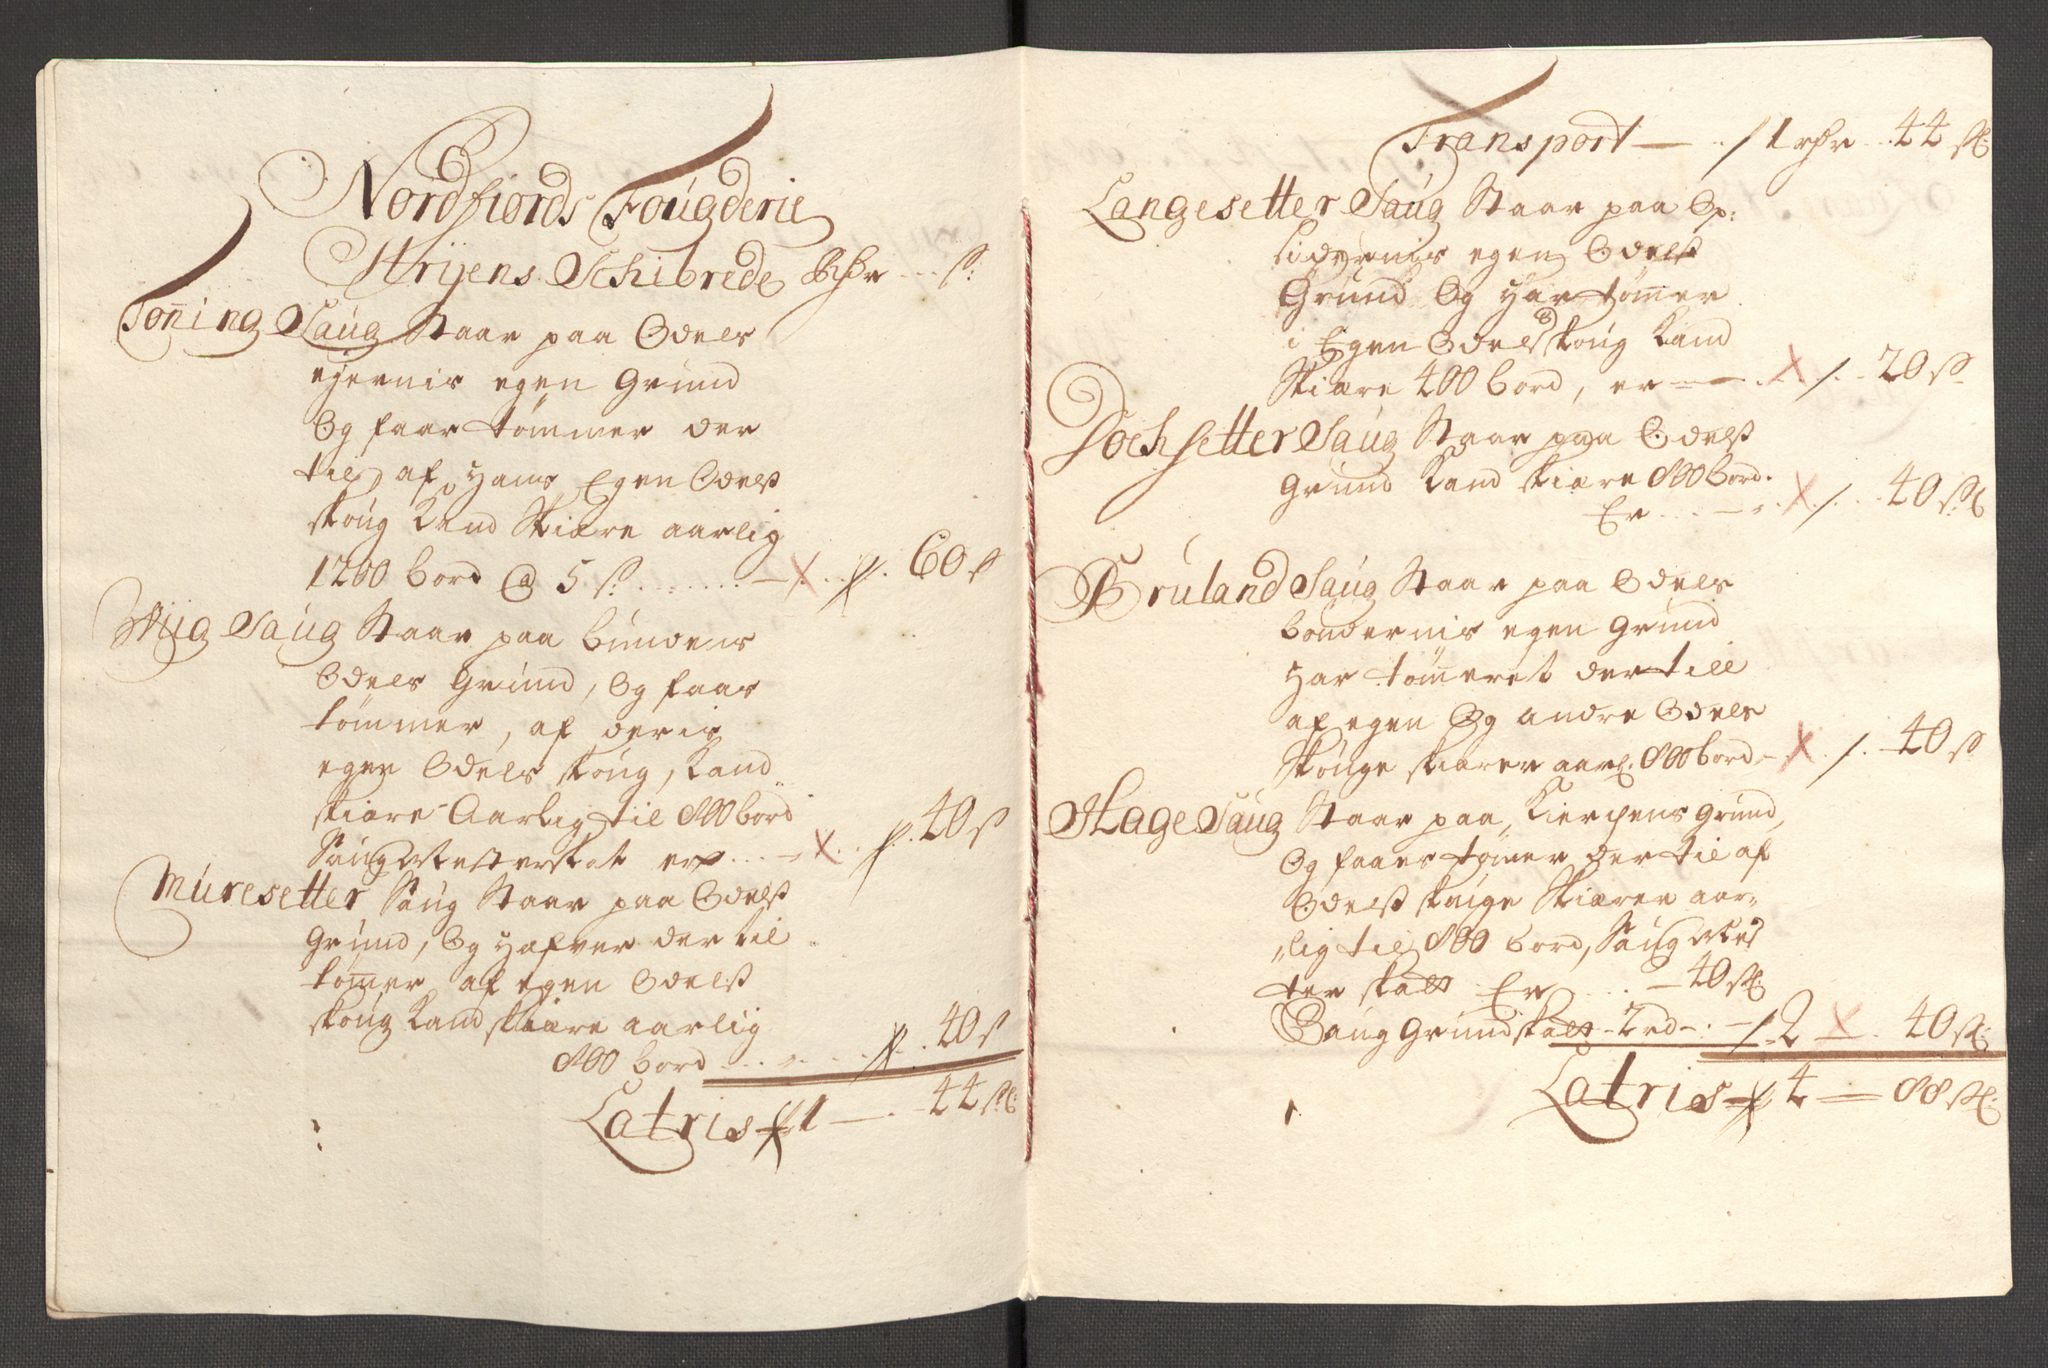 Nordfiords Fougderie
Strijens Schibrede Rdr ... s:
Toning Saug Staar paa Odels
ejernis egen Grund
Og faar tømmer der
til af Hans Egen Odelß
skoug Kand Skiære aarlig
1200 bord @ 5 s ........ – X .. 60 s
Wiig Saug Staar paa bundens
Odels Grund, Og faar
tømmer, af deris
egen Odels skoug, Kand
skiære Aarlig til 800 bord
Saug Mesterskat er ... – X .. 40 s
Muresetter Saug Staar paa Odelß
Grund, Og Hafver der til
tømer af egen Odelß
skoug Kand skiære aarlig
800 bord ........ 40 s
Latris 1 — 44 sl:
Transport — .. / 1 rdr .. 44 sl:
Langesetter Saug Staar paa Op:
sidernis egen Odelß
Grund Og Har tømer
i Egen Odelß skoug Kand
Skiære 400 bord, er — . X / . - 20 s
Sochsetter Saug Staar paa Odelß
Grund Kand skiære 800 bord.
Er ... – . X . / .. 40 sl
Bruland Saug Staar paa Odels
bondernis egen Grund
Har tømeret der till
af egen Og andre Odels
Skouge skiærer aarl. 800 bord – X . / . 40 s
Hage Saug Staar paa Kierchens Grund,
Og faaer tømer der til af
Odelß skouge Skiærer aar-
„lig til 800 bord, Saug Mes
ter skatt Er .... – 40 sl:
Saug Grundskatt - 2 rd – . – / 2 X . 40 sl:
Latris 4 — 88 sl: